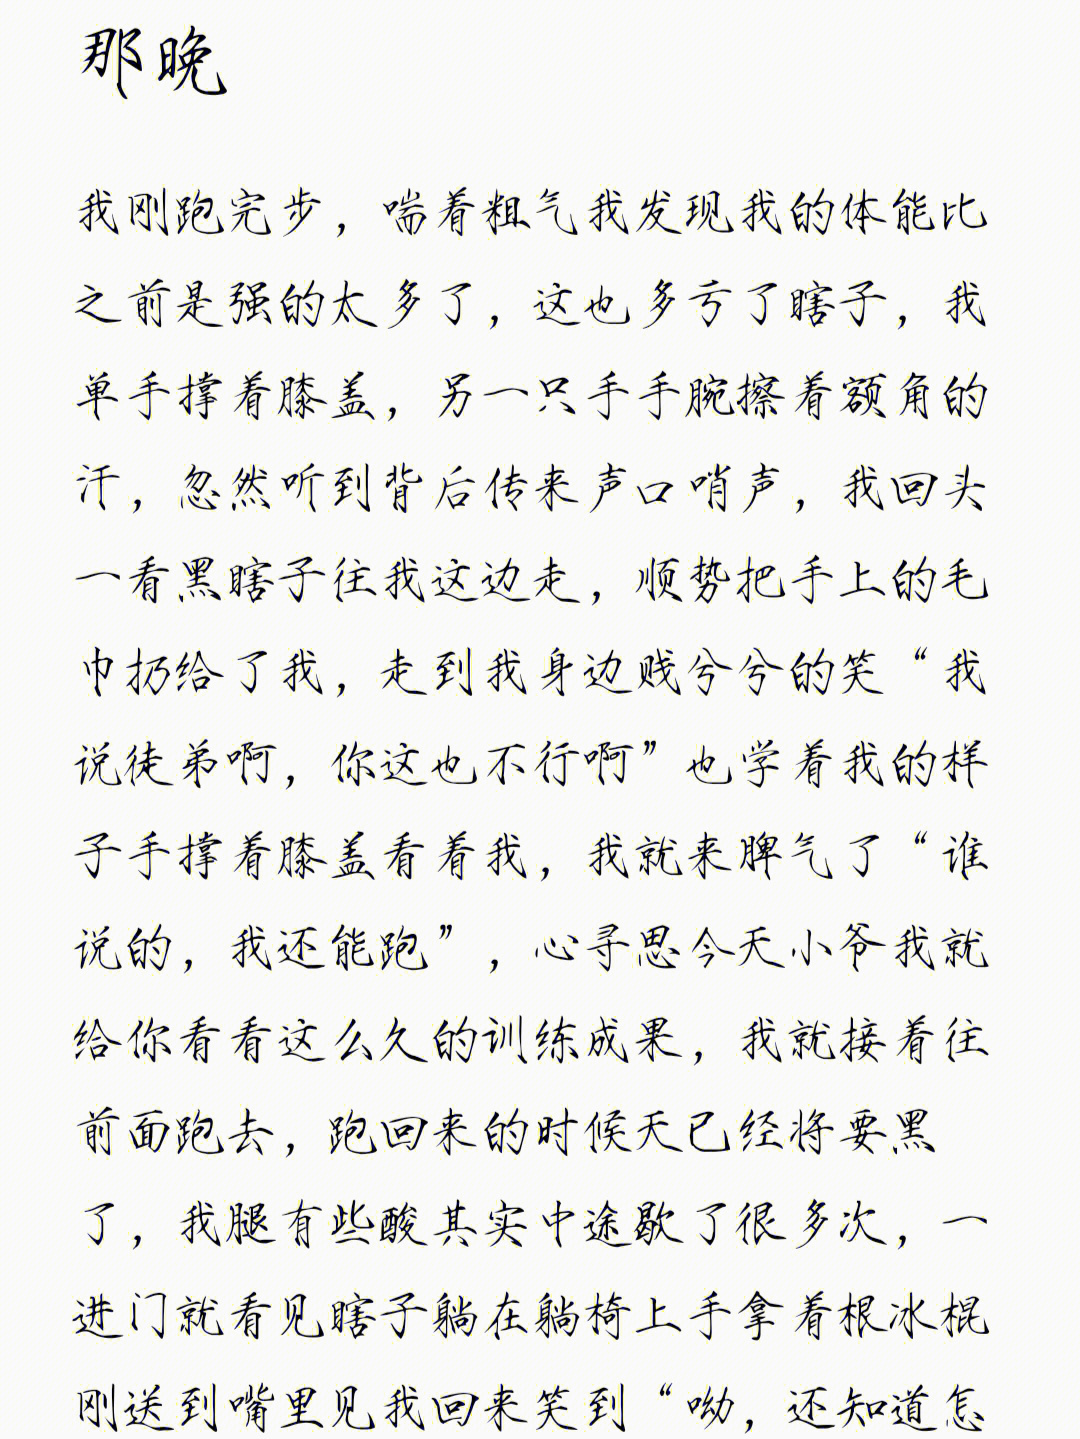 那晚
我刚跑完步，喘着粗气我发现我的体能比
之前是强的太多了，这也多亏了瞎子，我
单手撑着膝盖，另一只手手腕擦着额角的
汗，忽然听到背后传来声口哨声，我回头
一看黑瞎子往我这边走，顺势把手上的毛
巾扔给了我，走到我身边贱兮兮的笑“我
说徒弟啊，你这也不行啊”也学着我的样
子手撑着膝盖看着我，我就来脾气了“谁
说的，我还能跑”，心寻思今天小爷我就
给你看看这么久的训练成果，我就接着往
前面跑去，跑回来的时候天已经将要黑
了，我腿有些酸其实中途歇了很多次，一
进门就看见瞎子躺在躺椅上手拿着根冰棍
刚送到嘴里见我回来笑到“呦，还知道怎